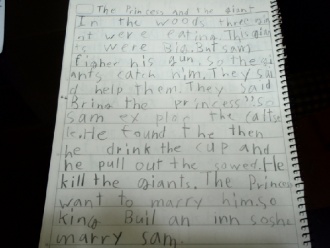 The Princess and the giant
In the woods three gia
nt were eating. This giant
s were Big. But sam
figher his gun. So the gi
ants catch him. They sai
d help them. They said
Bring the princess" so
Sam ex ploe the caltse
le. He found the then
he drink the cup and
he pull out the sowed. He
kill the giants. The Princess
want to marry him. so
King Buil an inn soshe
marry sam.